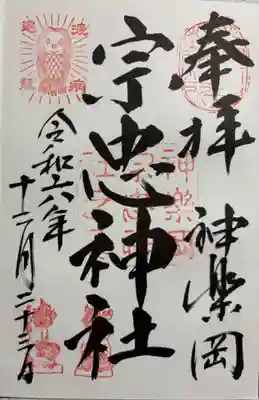 奉拝 神楽岡
宗忠神社
令和六年
十二月二十三日
神楽岡
宗忠神社